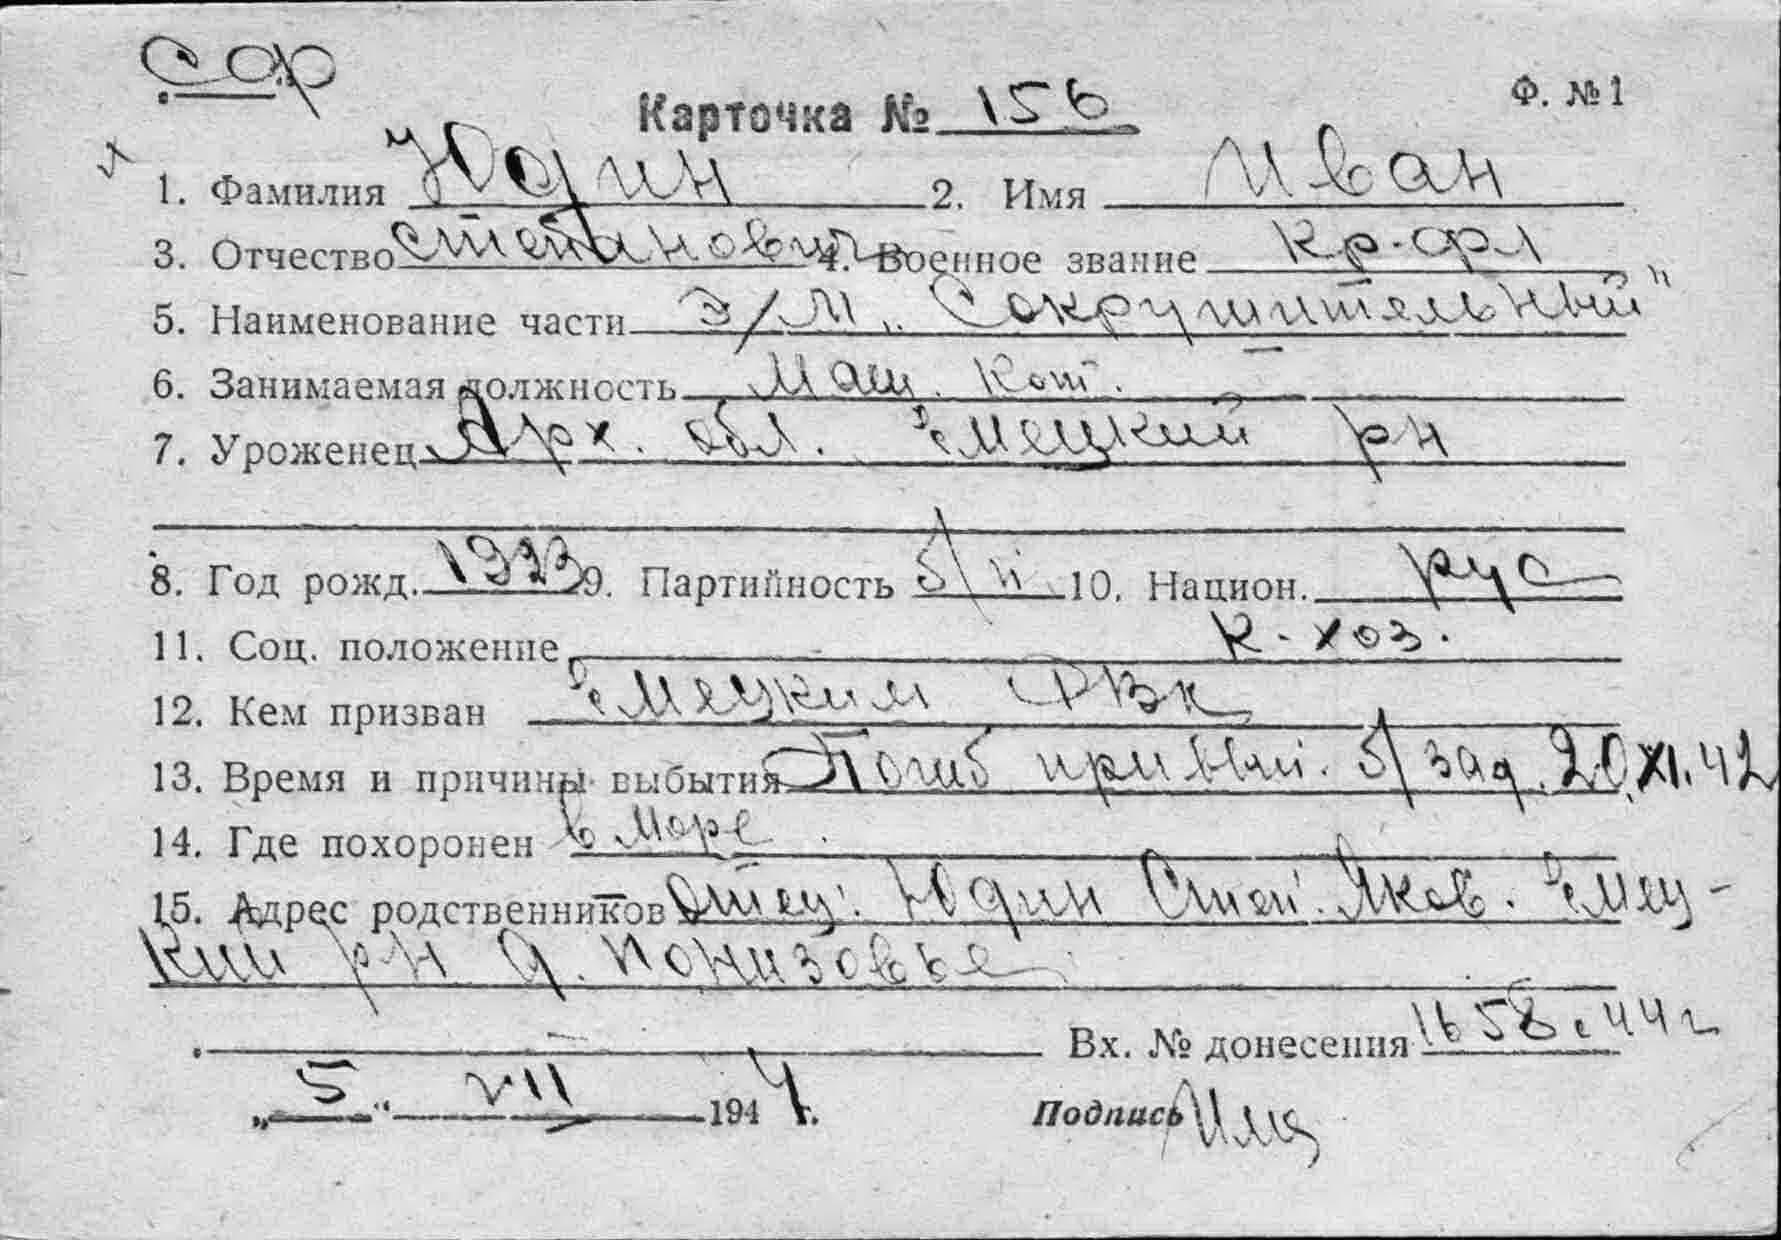 СФ
Карточка № 156
Ф. № 1
1. Фамилия Юдин 2. Имя Иван
3. Отчество Степанович 4. Военное звание кр-фл
5. Наименование части Э/М „Сокрушительный"
6. Занимаемая должность Маш. кот.
7. Уроженец Арх. обл. Емецкий рн
8. Год рожд. 1923 9. Партийность б/п 10. Национ. рус
11. Соц. положение к-хоз.
12. Кем призван Емецким РВК
13. Время и причины выбытия Погиб при вып. б/зад. 20.XI.42
14. Где похоронен в море
15. Адрес родственников отец: Юдин Степ. Яков. Емец-
кий рн д. Понизовье
Вх. № донесения 1658с 44г
„5" VII 1944 г. Подпись